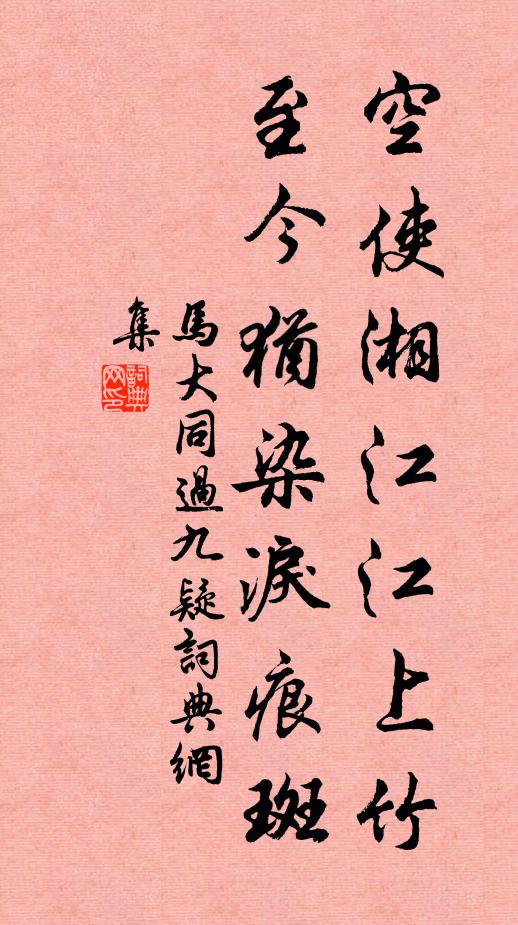 空使湘江江上竹
至今猶染淚痕斑
馬大同過九疑詞典網
集
詞典网印